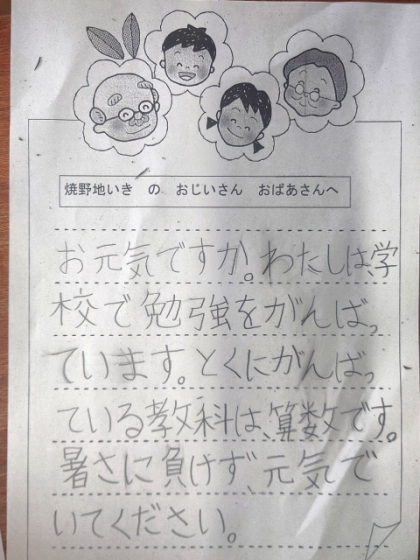 焼野地いき の おじいさん おばあさんへ
お元気ですか。わたしは、学
校で勉強をがんばっ
ています。とくにがんばっ
ている教科は、算数です。
暑さに負けず、元気で
いてください。